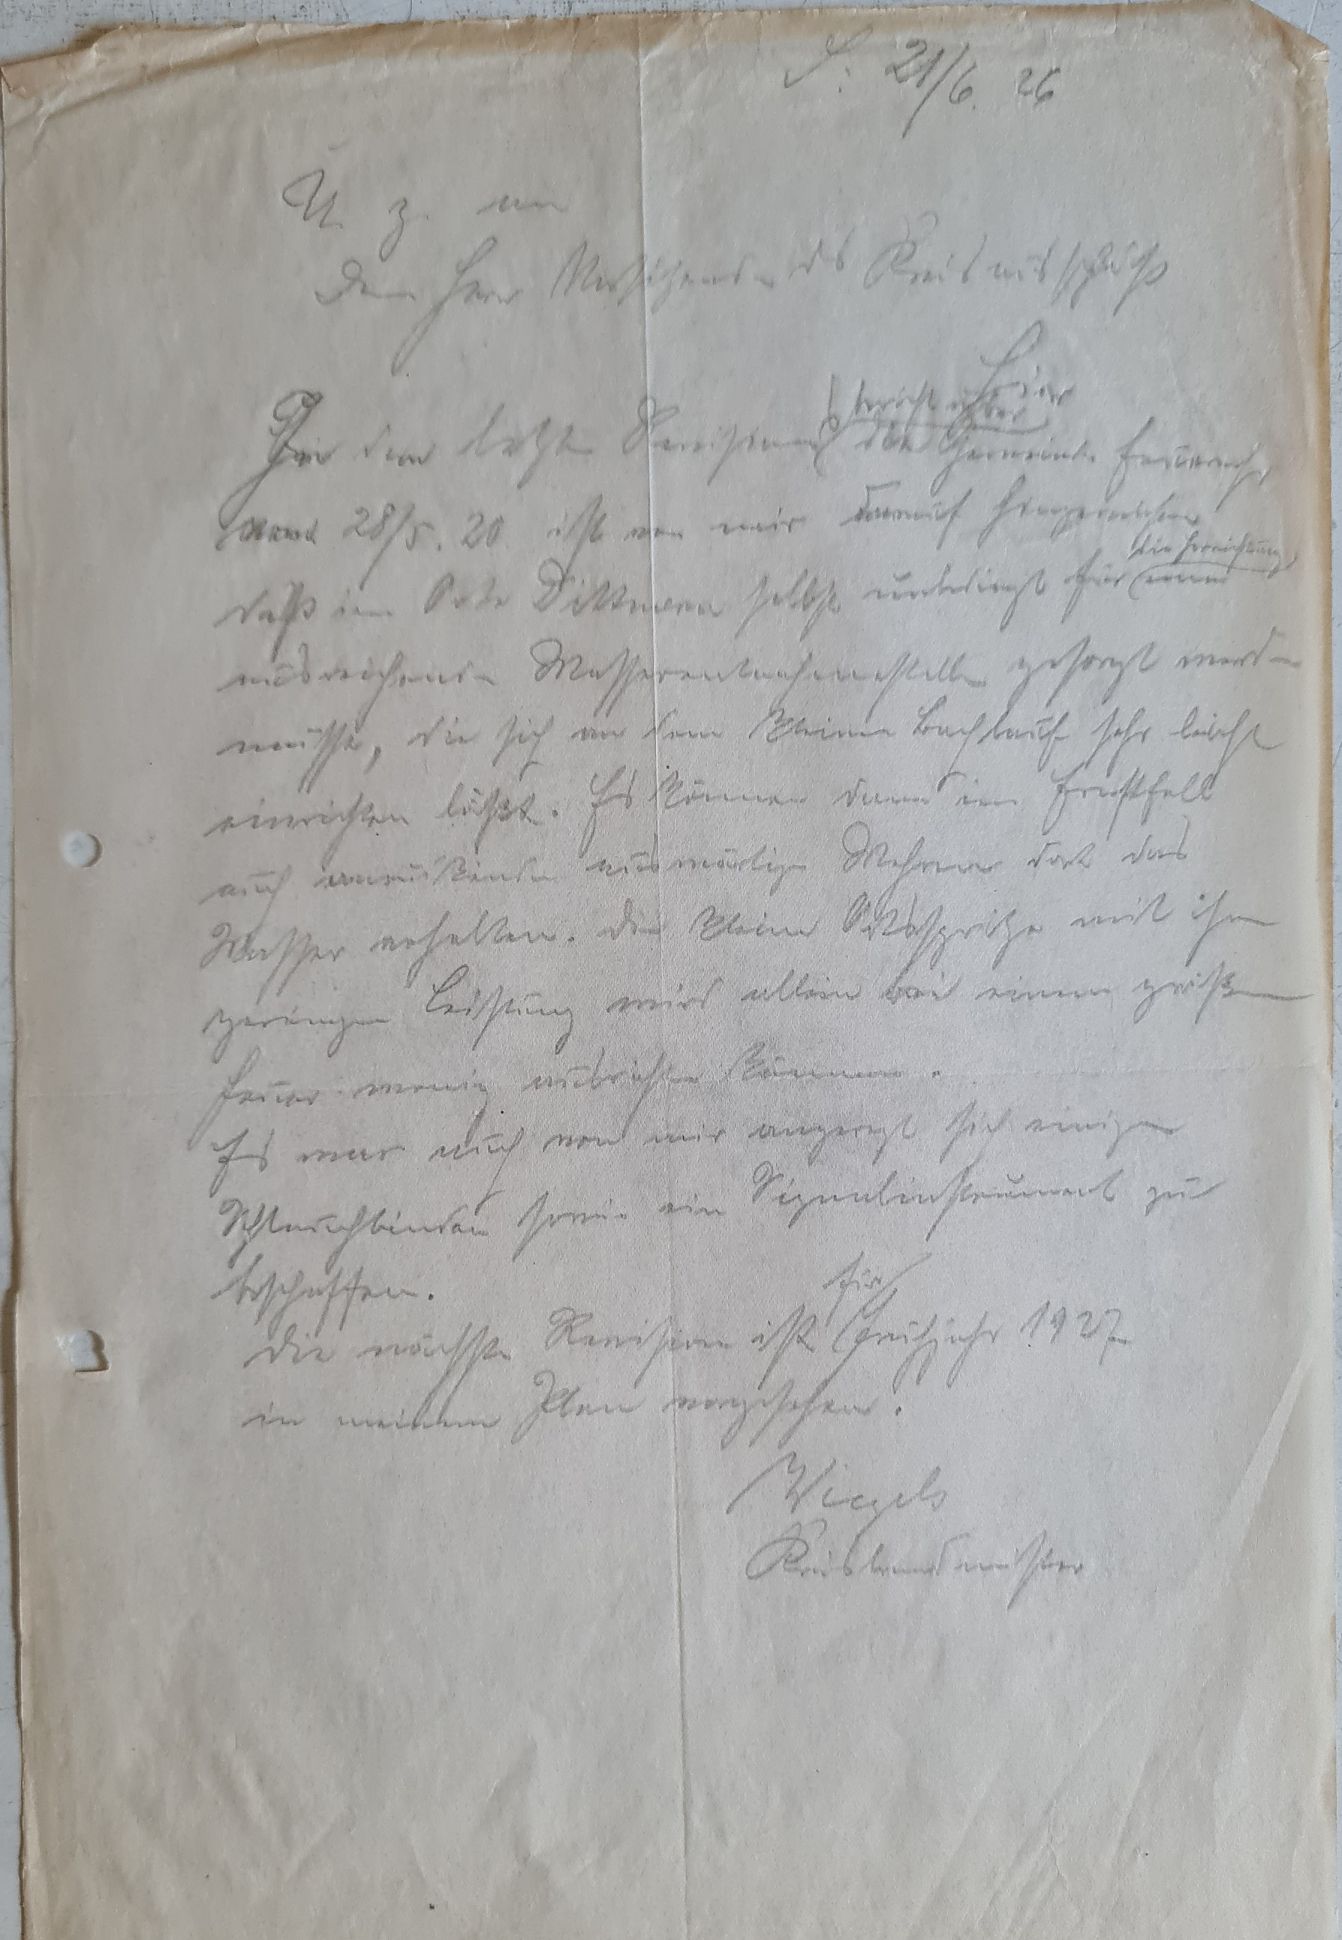 S. 21/6. 26
U. z. an
den Herr Vorsitzenden des Kreisausschuß
Hier
In dem letzten Revisions bericht über die Gemeinde Feuerwehr
vom 28/5. 20 ist von mir darauf hingewiesen
die Herrichtung
daß im Orte Dittmern selbst unbedingt für einen
ausreichende Wasserentnahmestelle gesorgt werden
müsste, die sich an dem kleinen Bachlauf sehr leicht
einrichten läßt. Es können dann im Ernstfall
auch anrückende auswärtige Wehren dort das
Wasser erhalten. Die kleine Ortsspritze mit ihrer
geringen Leistung wird allein bei einem größeren
Feuer wenig ausrichten können.
Es war auch von mir angeregt sich einige
Schlauchbinden sowie ein Signalinstrument zu
beschaffen.
Die nächste Revision ist für Frühjahr 1927
in meinem Plan vorgesehen.
Wiegels
Kreisbrandmeister